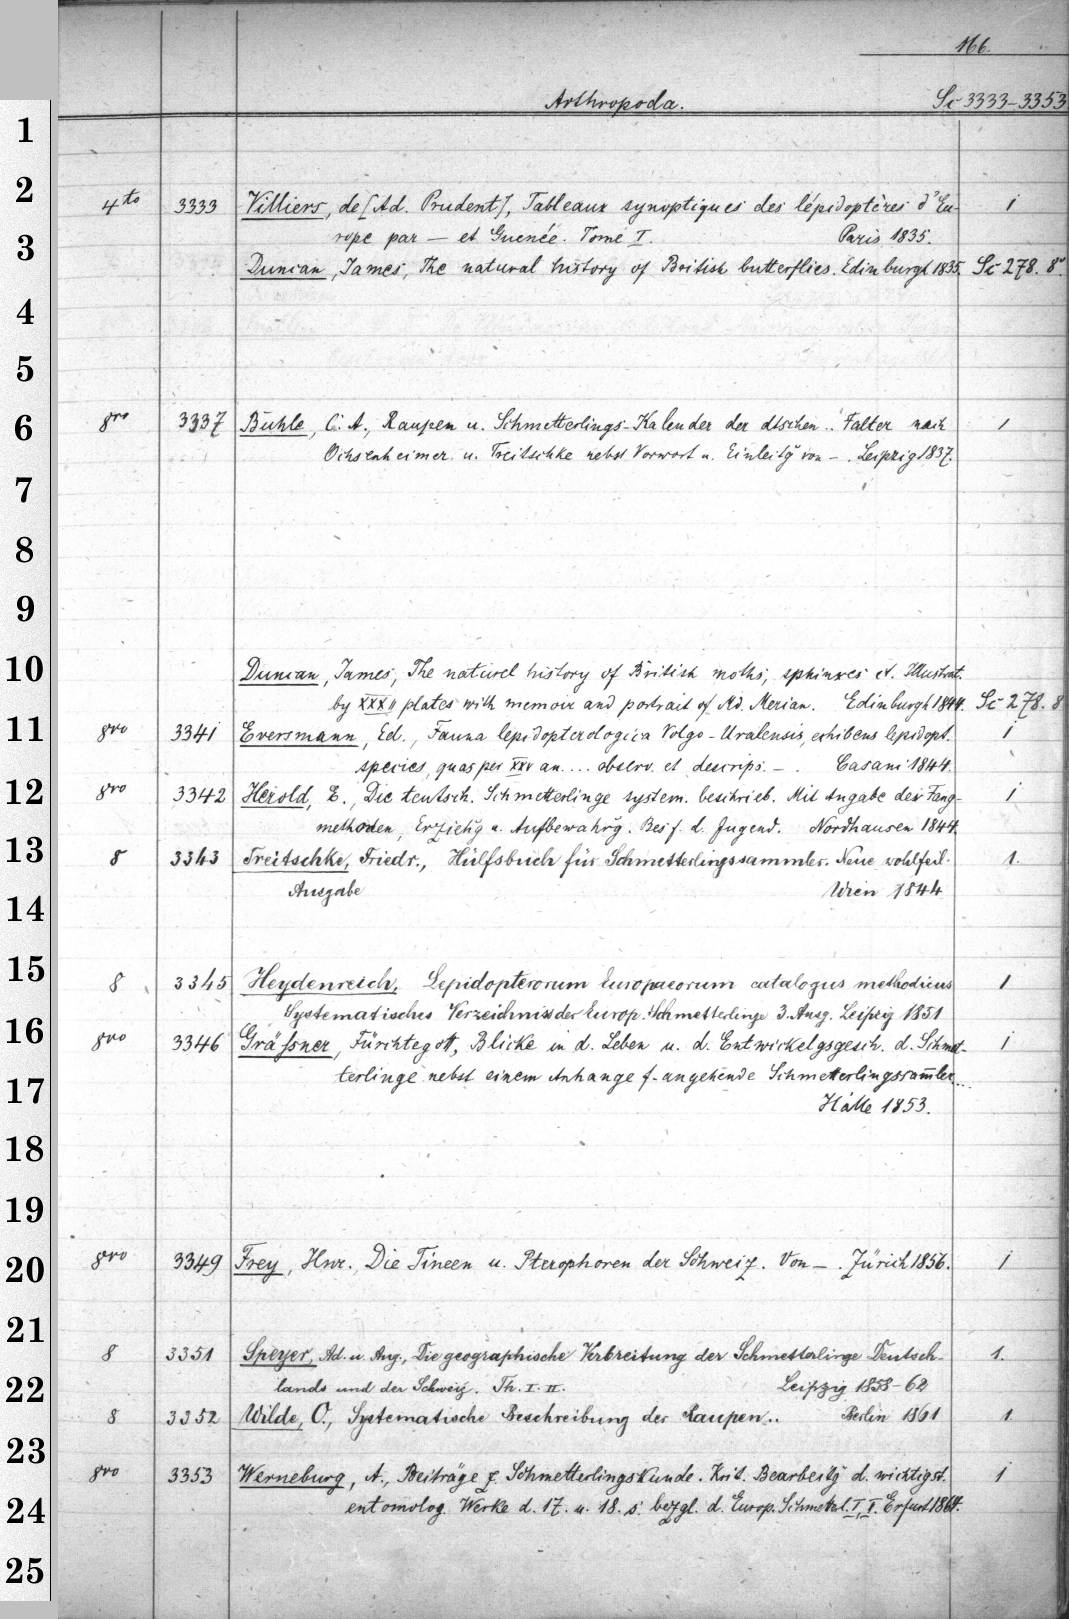 166.
Arthropoda. Sc 3333-3353
1
2
4to 3333 Villiers, de [Ad. Prudent], Tableaux synoptiques des lépidoptères d'Eu- 1
rope par — et Guenée. Tome I. Paris 1835.
3
Duncan, James, The natural history of British butterflies. Edinburgh 1835. Sc 278. 8°
4
5
6
8vo 3337 Buhle, C. A., Raupen u. Schmetterlings-Kalender der dtschen .. Falter nach 1
Ochsenheimer u. Treitschke nebst Vorwort u. Einleitg von — . Leipzig 1837.
7
8
9
10
Duncan, James, The naturel history of British moths, sphinxes et. Illustrat.
by XXXII plates with memoir and portrait of Md. Merian. Edinburgh 1844. Sc 278. 8
11
8vo 3341 Eversmann, Ed., Fauna lepidopterologica Volgo-Uralensis, exhibens lepidopt. 1
species, quas per XXV an.... observ. et descrips. — . Casani 1844.
12
8vo 3342 Herold, E., Die teutsch. Schmetterlinge system. beschrieb. Mit Angabe der Fang- 1
methoden, Erziehg u. Aufbewahrg. Bes f. d. Jugend. Nordhausen 1844.
13
8 3343 Treitschke, Friedr., Hülfsbuch für Schmetterlingssammler. Neue wohlfeil. 1.
Ausgabe Wien 1844
14
15
8 3345 Heydenreich, Lepidopterorum Europaeorum catalogus methodicus 1
Systematisches Verzeichniss der Europ. Schmetterlinge 3. Ausg. Leipzig 1851
16
8vo 3346 Gräfsner, Fürchtegott, Blicke in d. Leben u. d. Entwickelgsgesch. d. Schmet- 1
terlinge nebst einem Anhange f. angehende Schmetterlingssam̄ler...
17
Halle 1853.
18
19
20
8vo 3349 Frey, Hnr., Die Tineen u. Pterophoren der Schweiz. Von — . Zürich 1856. 1
21
8 3351 Speyer, Ad. u. Aug., Die geographische Verbreitung der Schmetterlinge Deutsch- 1.
22
lands und der Schweiz. Th. I. II. Leipzig 1858-62
8 3352 Wilde, O., Systematische Beschreibung der Raupen.. Berlin 1861 1
23
8vo 3353 Werneburg, A., Beiträge z. Schmetterlingskunde. Krit. Bearbeitg d. wichtigst. 1
24
entomolog. Werke d. 17. u. 18. s. bezgl. d. Europ. Schmetterl. I, II. Erfurt 1864.
25